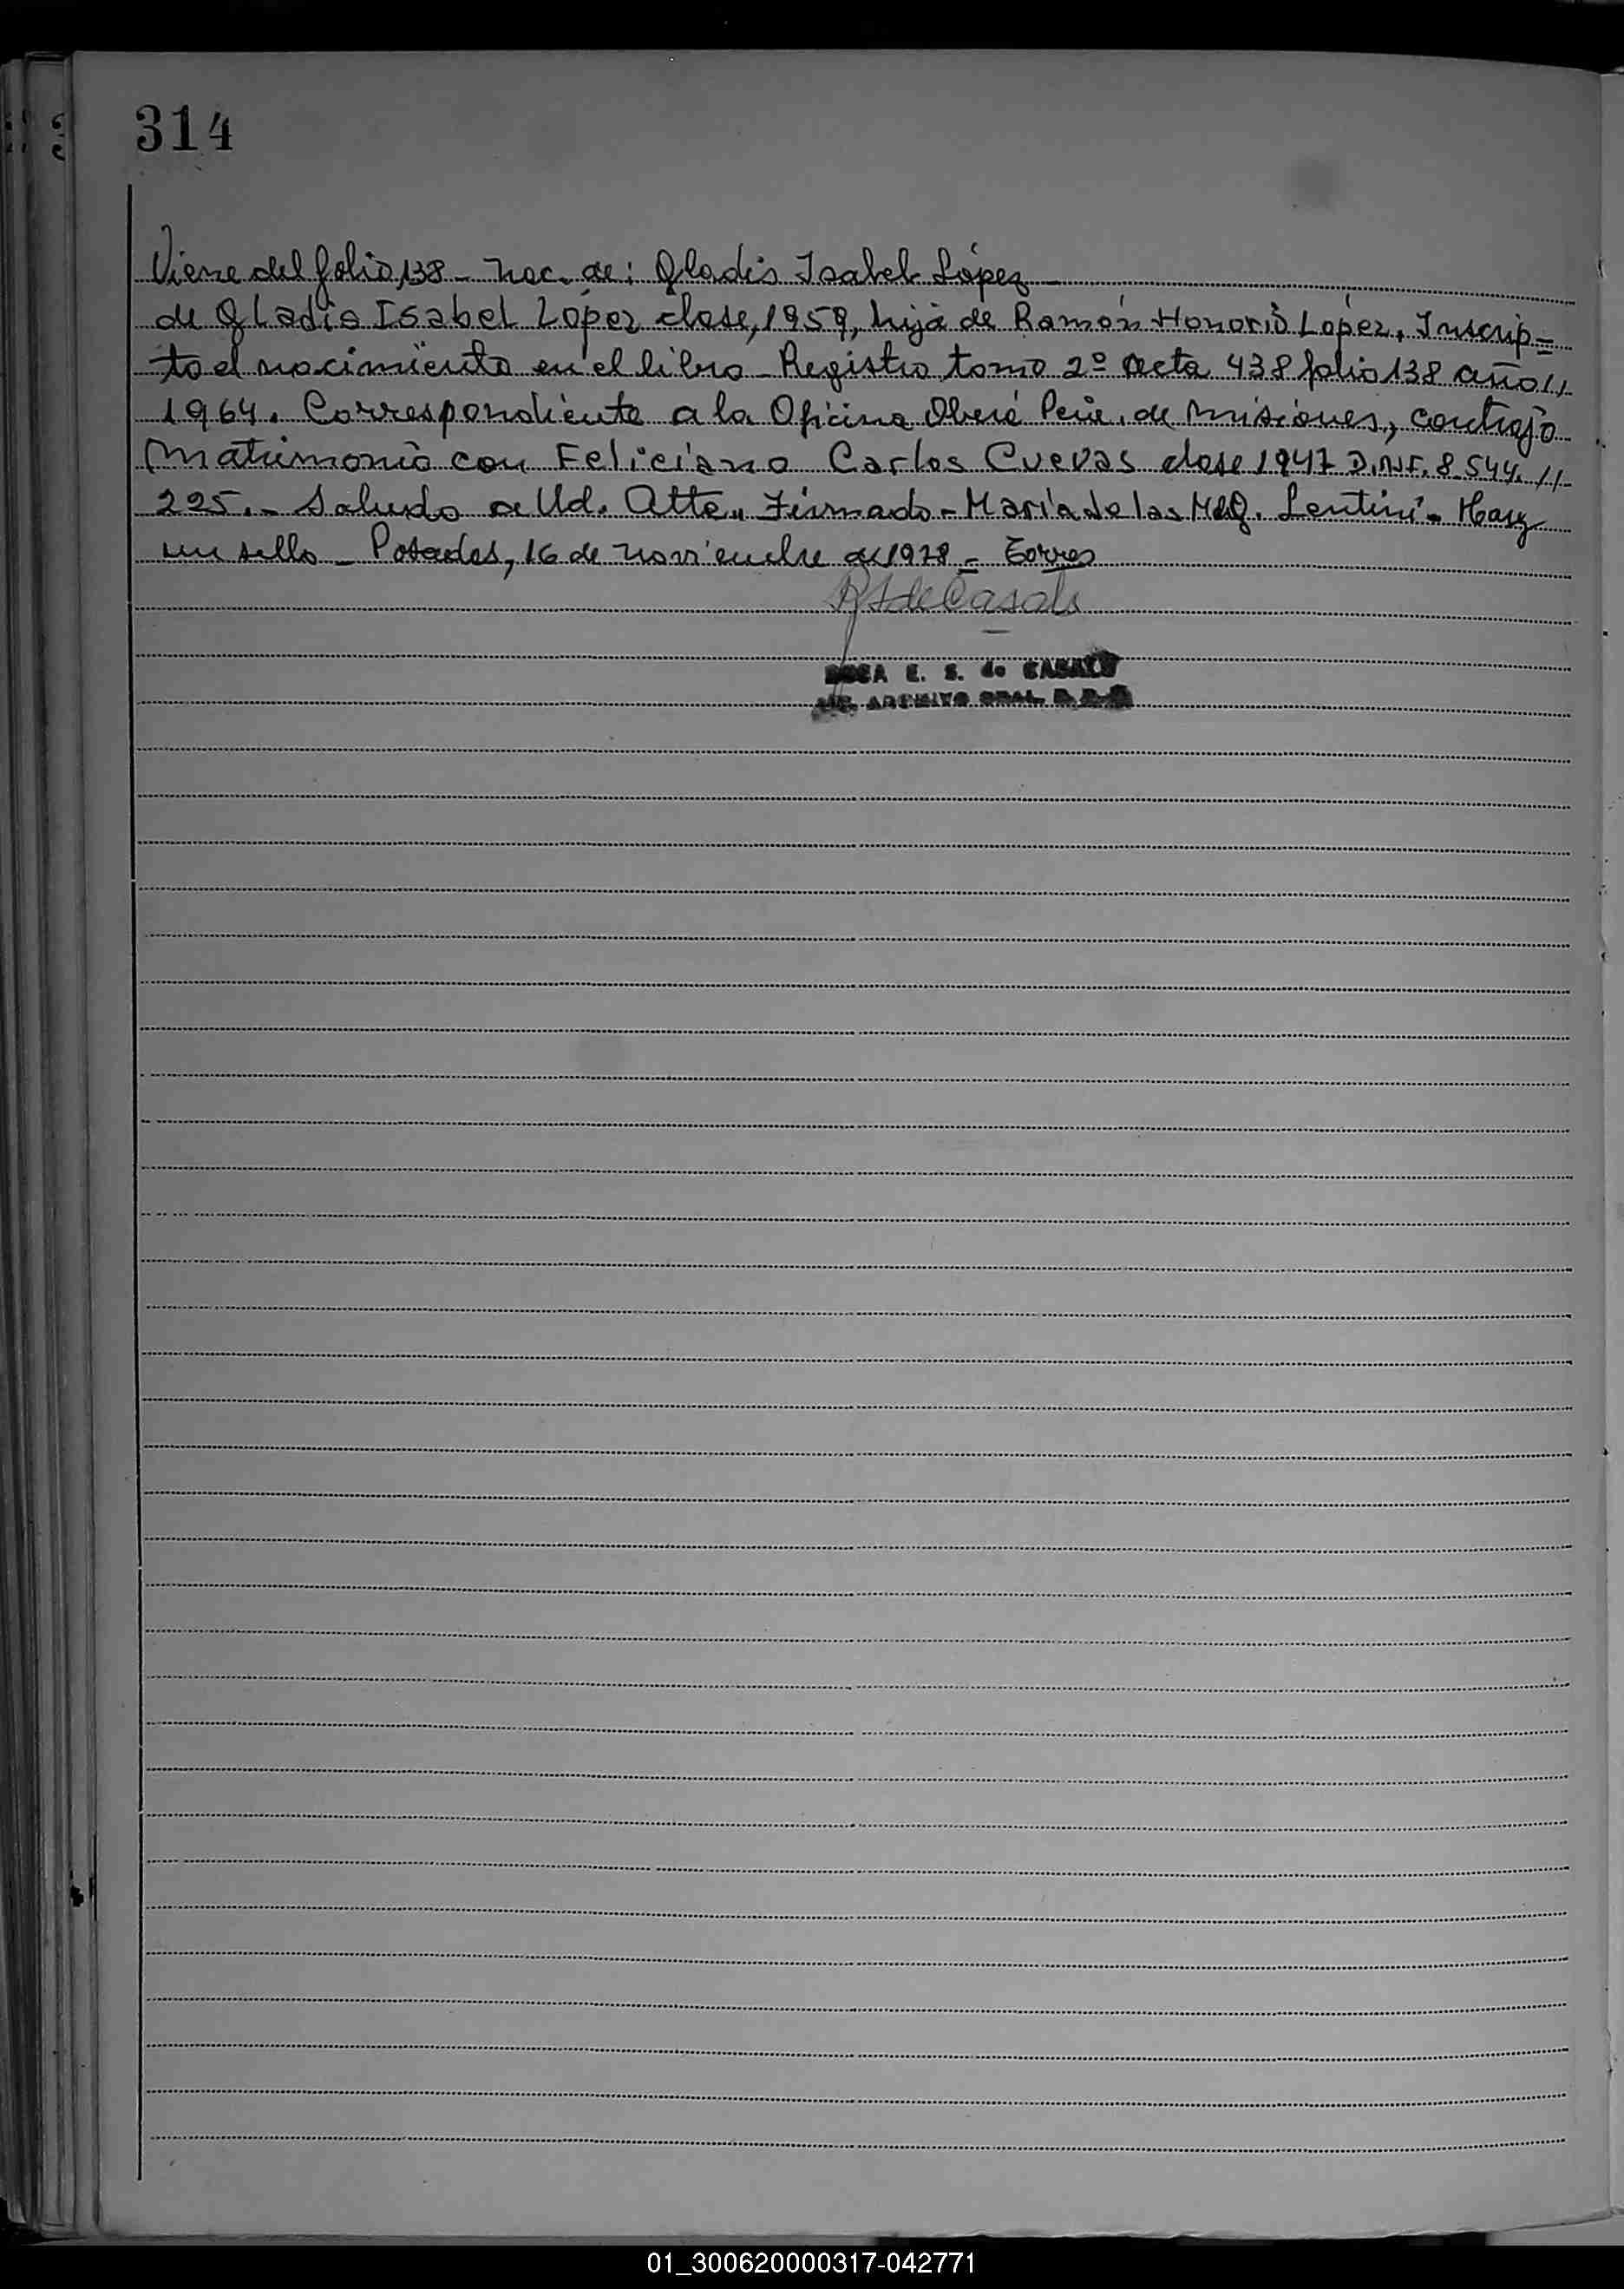 314
Viene del folio 138 - Nac. de: Gladis Isabel López
de Gladis Isabel López clase, 1959, hija de Ramón Honorio López, Inscrip=
to el nacimiento en el libro - Registro tomo 2º acta 438 folio 138 año //
1964. Correspondiente a la Oficina Oberá Pcia. de Misiones, contrajo
Matrimonio con Feliciano Carlos Cuevas clase 1947 D.N.I. 8.544. //
225.- Saludo a Ud. Atte. Firmado - María de las M. Lentini - Hay
un sello - Posadas, 16 de noviembre de 1978 = Torres
R S de Casals
ROSA E. S. de CASALS
ARCHIVO GRAL.
01_300620000317-042771